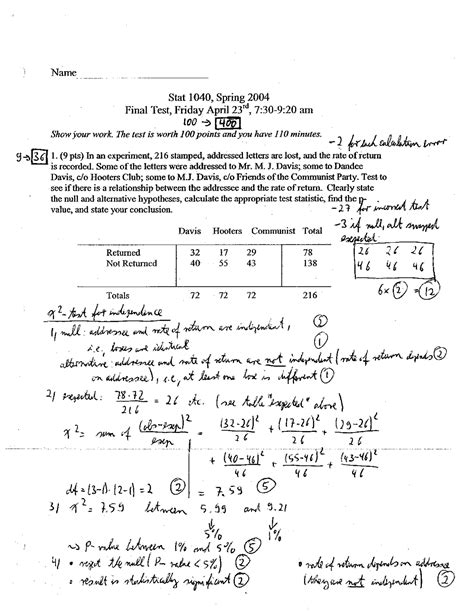 Name
Stat 1040, Spring 2004
Final Test, Friday April 23rd, 7:30-9:20 am
100 → 400
Show your work. The test is worth 100 points and you have 110 minutes.
-2 for each calculation error
9→36 1. (9 pts) In an experiment, 216 stamped, addressed letters are lost, and the rate of return
is recorded. Some of the letters were addressed to Mr. M. J. Davis; some to Dandee
Davis, c/o Hooters Club; some to M.J. Davis, c/o Friends of the Communist Party. Test to
see if there is a relationship between the addressee and the rate of return. Clearly state
the null and alternative hypotheses, calculate the appropriate test statistic, find the p-
value, and state your conclusion.
-27 for incorrect test
-3 if null, alt swapped
Davis Hooters Communist Total
Returned 32 17 29 78
Not Returned 40 55 43 138
Totals 72 72 72 216
expected:
26 26 26
46 46 46
6× 2 = 12
χ²-test for independence
1) null: addressee and rate of return are independent, 2
i.e., boxes are identical 1
alternative: addressee and rate of return are not independent (rate of return depends 2
on addressee), i.e, at least one box is different 1
2) expected: 78·72 / 216 = 26 etc. (see table "expected" above)
χ² = sum of (obs-exp)² / exp = (32-26)² / 26 + (17-26)² / 26 + (29-26)² / 26
+ (40-46)² / 46 + (55-46)² / 46 + (43-46)² / 46
df = (3-1)·(2-1) = 2 2 = 7.59 5
3) χ² = 7.59 between 5.99 and 9.21
↓ ↓
5% 1%
⇒ P-value between 1% and 5% 5
4) • reject the null (P-value < 5%) 2
• result is statistically significant 2
• rate of return depends on addressee
(they are not independent) 2